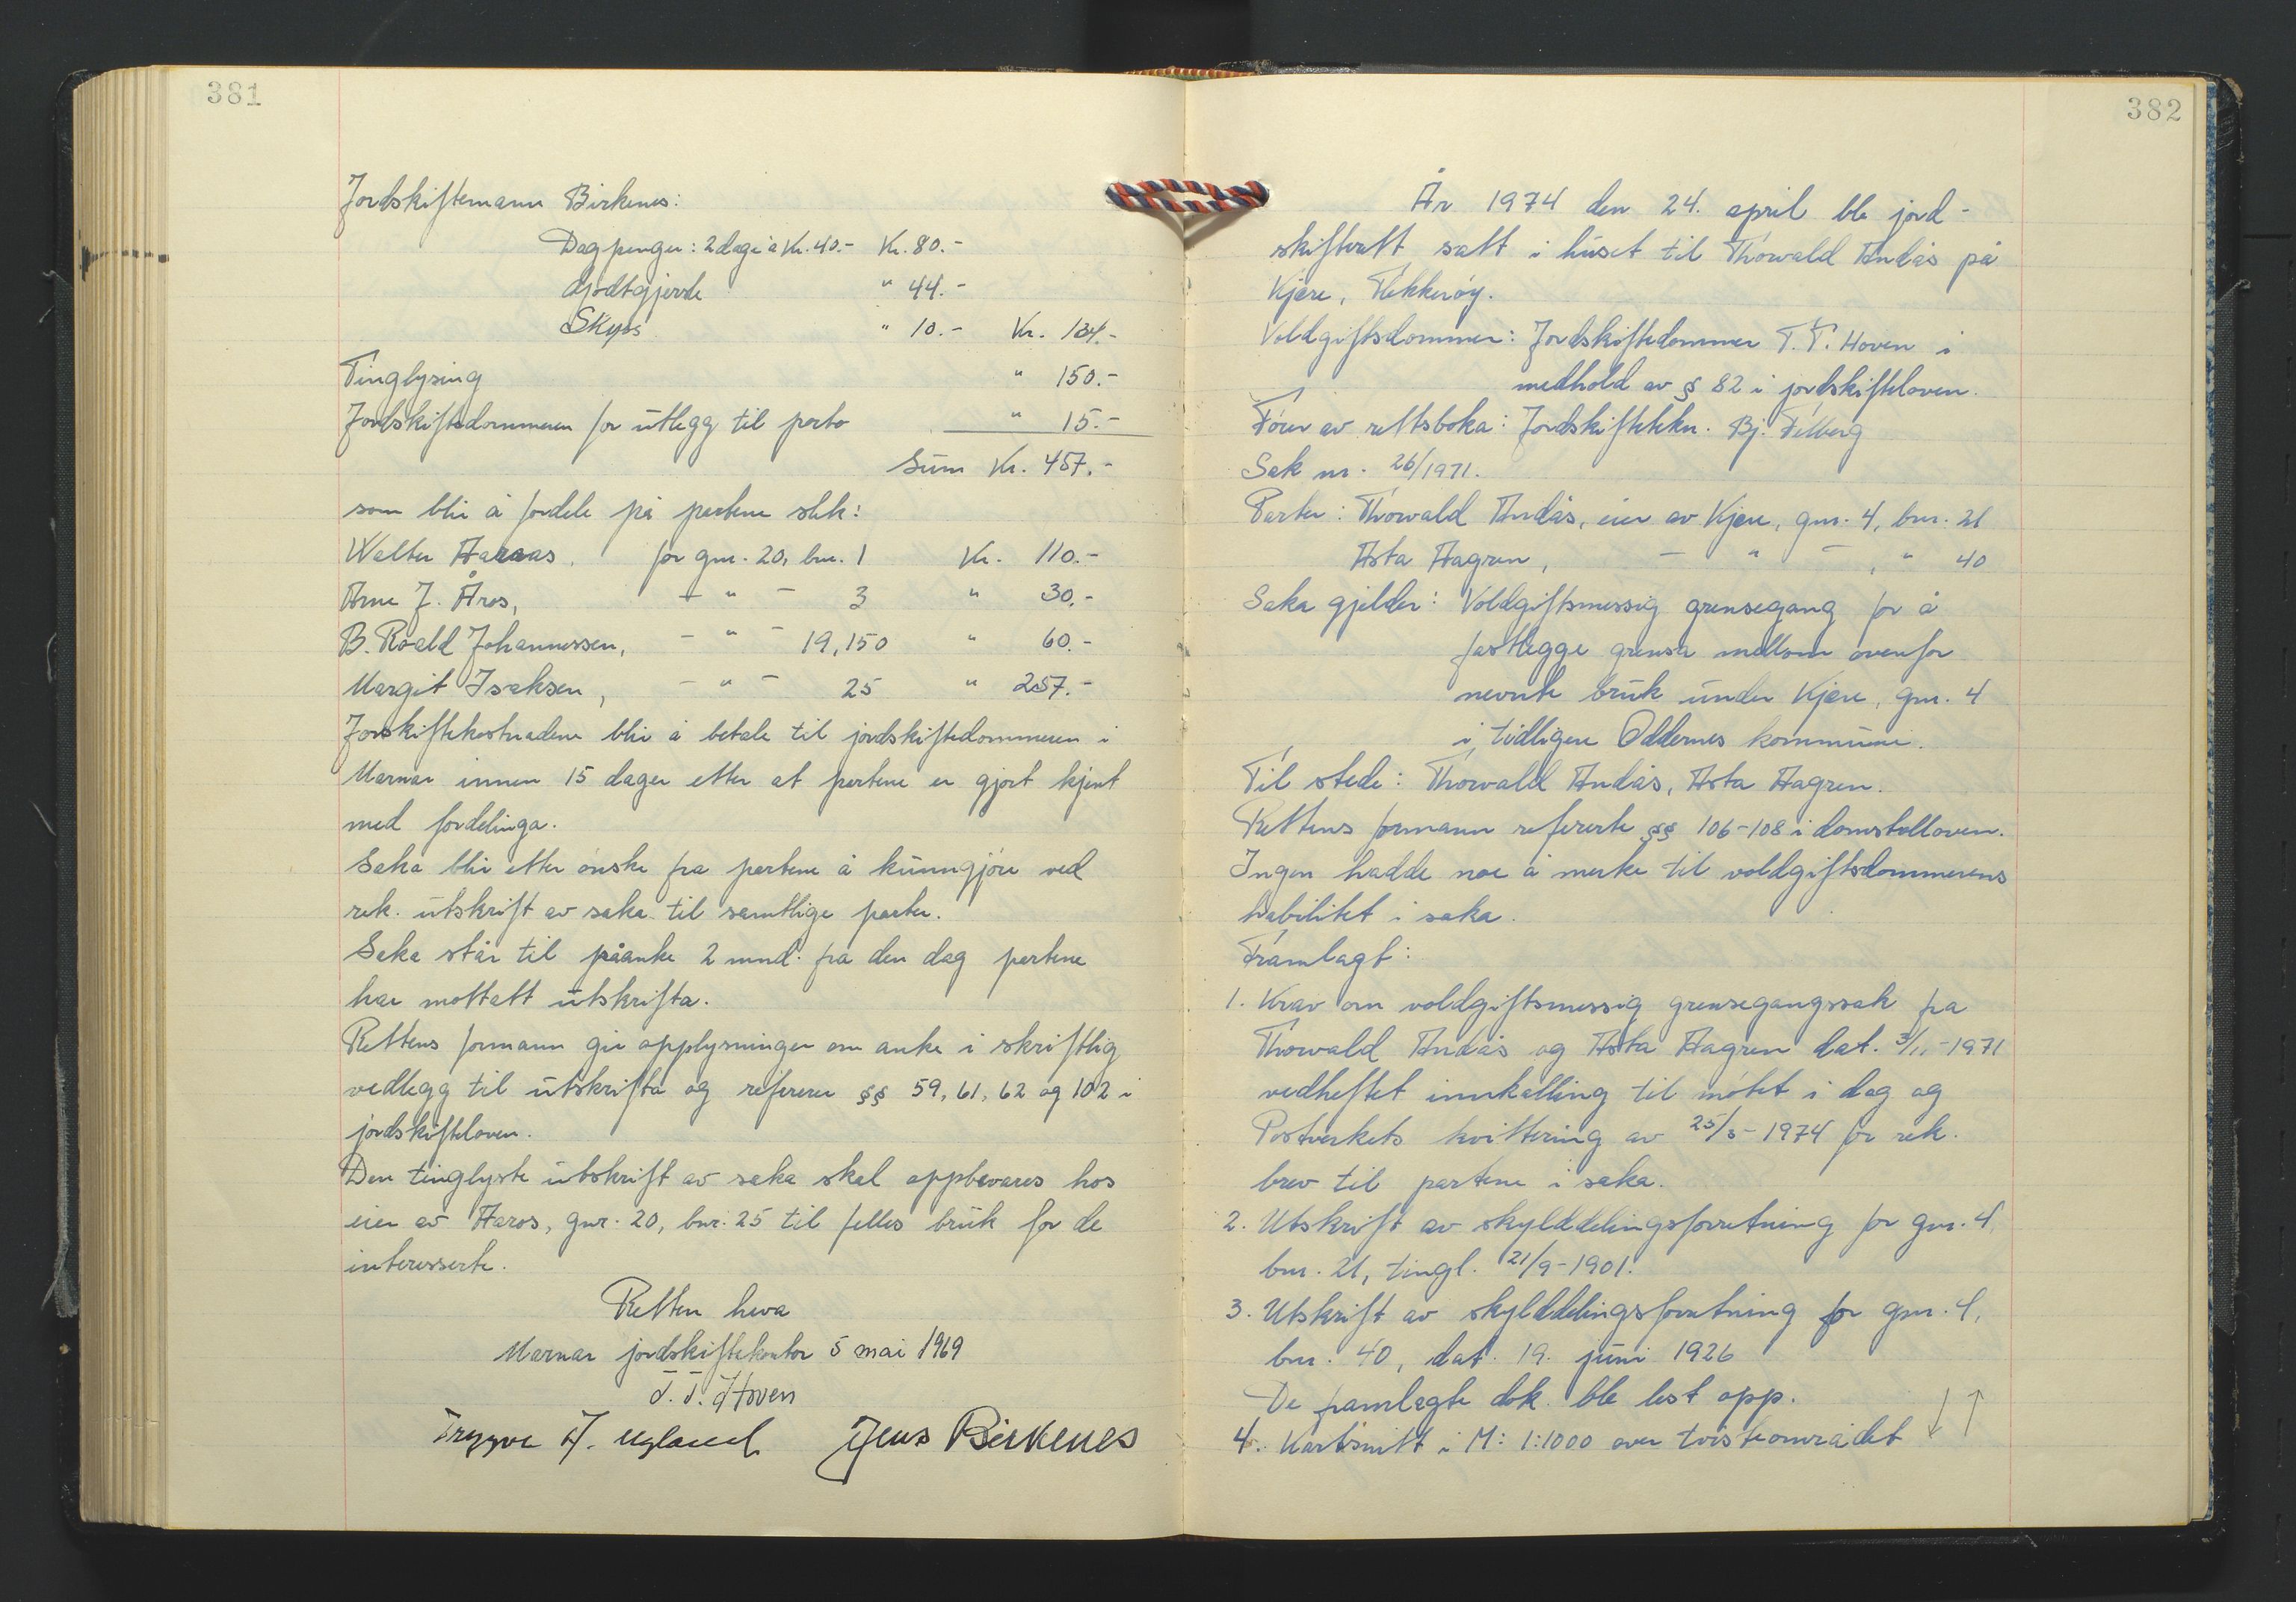 381
Jordskiftemann Birkenes:
Dagpenger: 2 dage à Kr. 40.- Kr. 80.-
Godtgjerde " 44.-
Skyss " 10.- Kr. 134.-
Tinglysing " 150.-
Jordskiftedommeren for utlegg til porto " 15.-
Sum Kr. 457.-
som blir å fordele på partene slik:
Walter Aaraas, for gnr. 20, bnr. 1 Kr. 110.-
Arne J. Åros, - " - 3 " 30.-
B. Roald Johannessen, - " - 19,150 " 60.-
Margit Isaksen, - " - 25 " 257.-
Jordskiftekostnadene blir å betale til jordskiftedommeren i
Marnar innen 15 dager etter at partene er gjort kjent
med fordelinga.
Saka blir etter ønske fra partene å kunngjøre ved
rek. utskrift av saka til samtlige parter.
Saka står til påanke 2 mnd. fra den dag partene
har mottatt utskrifta.
Rettens formann gir opplysninger om anke i skriftlig
vedlegg til utskrifta og refererer §§ 59, 61, 62 og 102 i
jordskifteloven.
Den tinglyste utskrift av saka skal oppbevares hos
eier av Aaros, gnr. 20, bnr. 25 til felles bruk for de
interesserte.
Retten heva
Marnar jordskiftekontor 5 mai 1969
T. T. Hoven
Trygve A. Ugland Jens Birkenes
382
År 1974 den 24. april ble jord-
skifterett satt i huset til Thorvald Andås på
Kjære, Flekkerøy.
Voldgiftsdommer: Jordskiftedommer T. T. Hoven i
medhold av § 82 i jordskifteloven.
Fører av rettsboka: Jordskiftetekn. Bj. Felberg
Sak nr. 26/1971.
Parter: Thorvald Andås, eier av Kjære, gnr. 4, bnr. 21
Asta Aagren, - " - , " 40
Saka gjelder: Voldgiftsmessig grensegang for å
fastlegge grensa mellom ovenfor
nevnte bruk under Kjære, gnr. 4
i tidligere Oddernes kommune.
Til stede: Thorvald Andås, Asta Aagren.
Rettens formann refererte §§ 106-108 i domstolloven.
Ingen hadde noe å merke til voldgiftsdommerens
habilitet i saka.
Framlagt:
1. Krav om voldgiftsmessig grensegangssak fra
Thorvald Andås og Asta Aagren dat. 3/11-1971
vedheftet innkalling til møtet i dag og
Postverkets kvittering av 25/3-1974 for rek.
brev til partene i saka.
2. Utskrift av skylddelingsforretning for gnr. 4,
bnr. 21, tingl. 21/9-1901.
3. Utskrift av skylddelingsforretning for gnr. 4,
bnr. 40, dat. 19. juni 1926
De framlagte dok. ble lest opp.
4. Kartsnitt i M: 1:1000 over tvisteområdet ↓ ↑